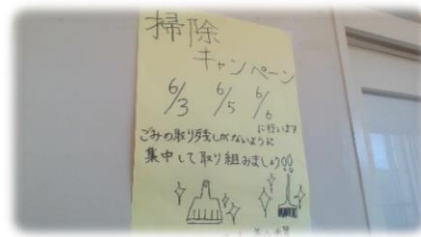 掃除
キャンペーン
6/3 6/5 6/6
に行います
ごみの取り残しがないように
集中して取り組みましょう!!